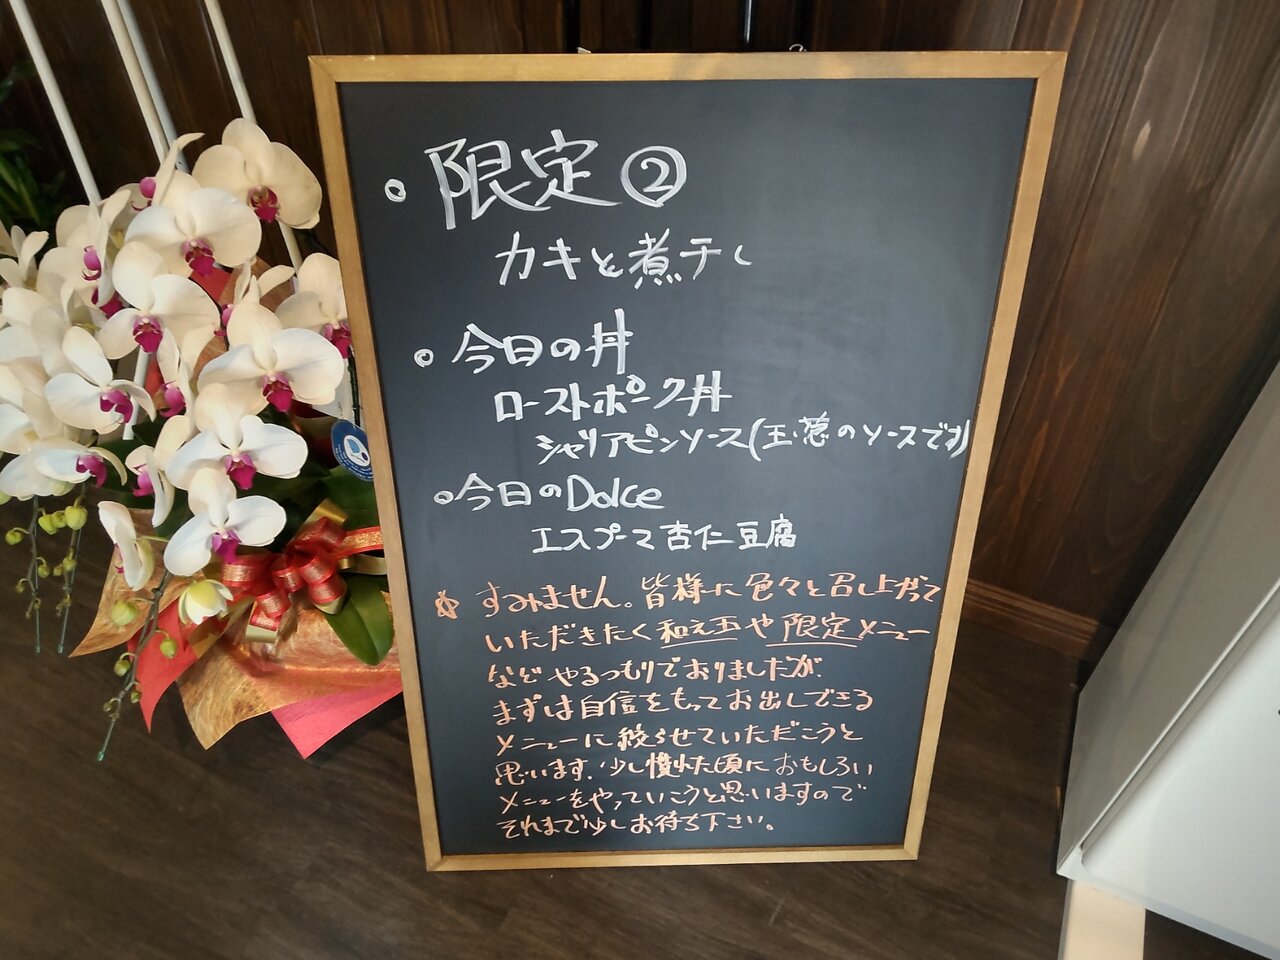 。限定②
カキと煮干し
。今日の丼
ローストポーク丼
シャリアピンソース(玉葱のソースです)
。今日のDolce
エスプーマ杏仁豆腐
すみません。皆様に色々と召し上がって
いただきたく和え玉や限定メニュー
などやるつもりでおりましたが、
まずは自信をもってお出しできる
メニューに絞らせていただこうと
思います。少し慣れた頃におもしろい
メニューをやっていこうと思いますので
それまで少しお待ち下さい。